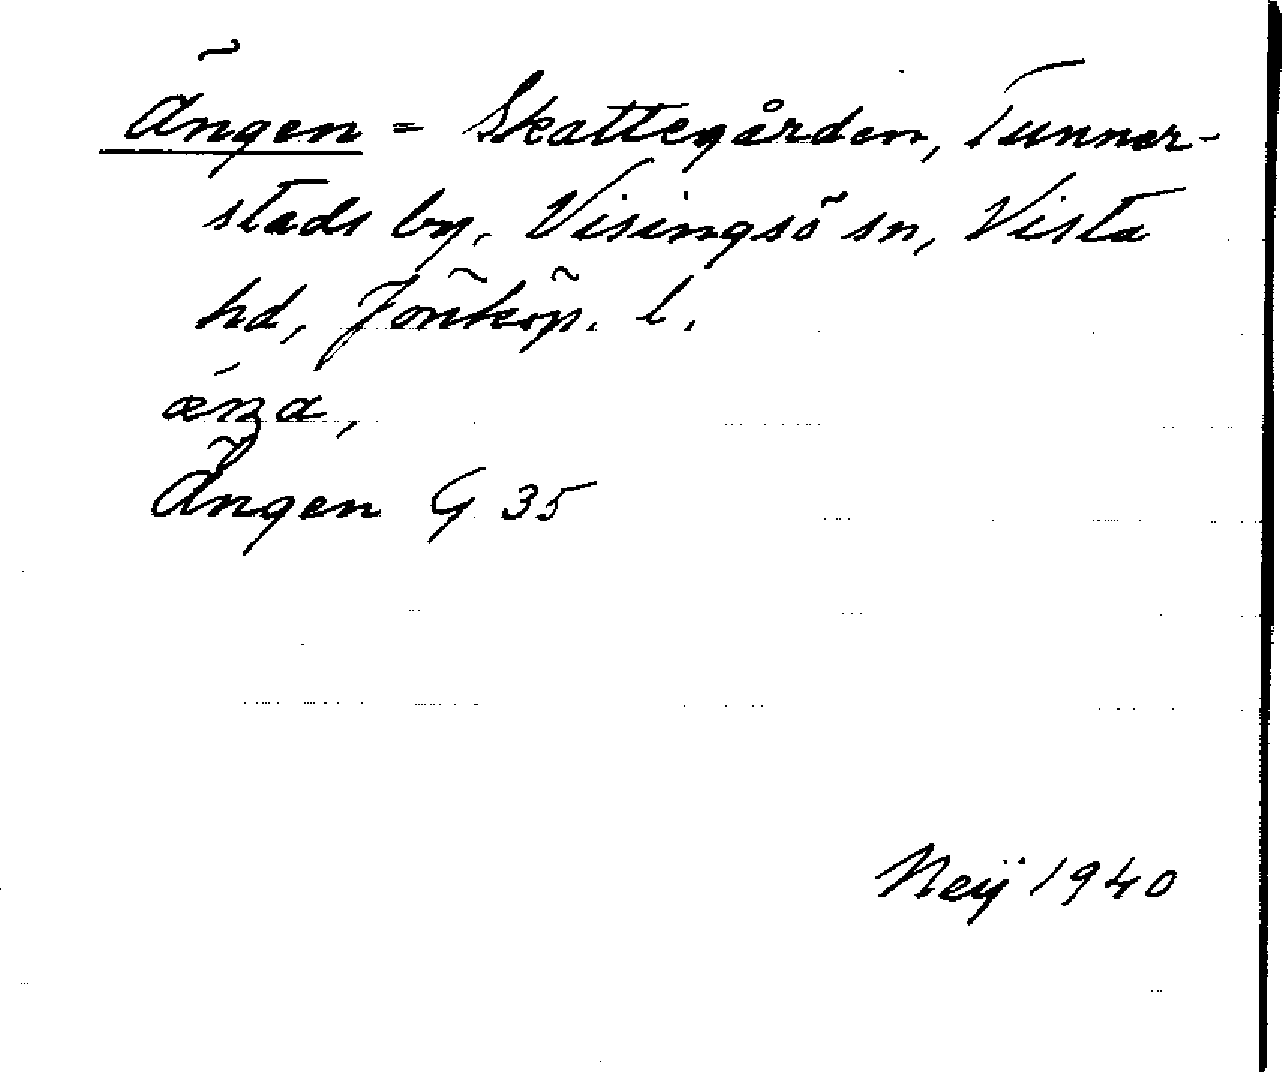 Ängen = Skattegården, Tunner-
stads by, Visingsö sn, Vista
hd, Jönköp. l.
Ängen G 35
Neÿ 1940